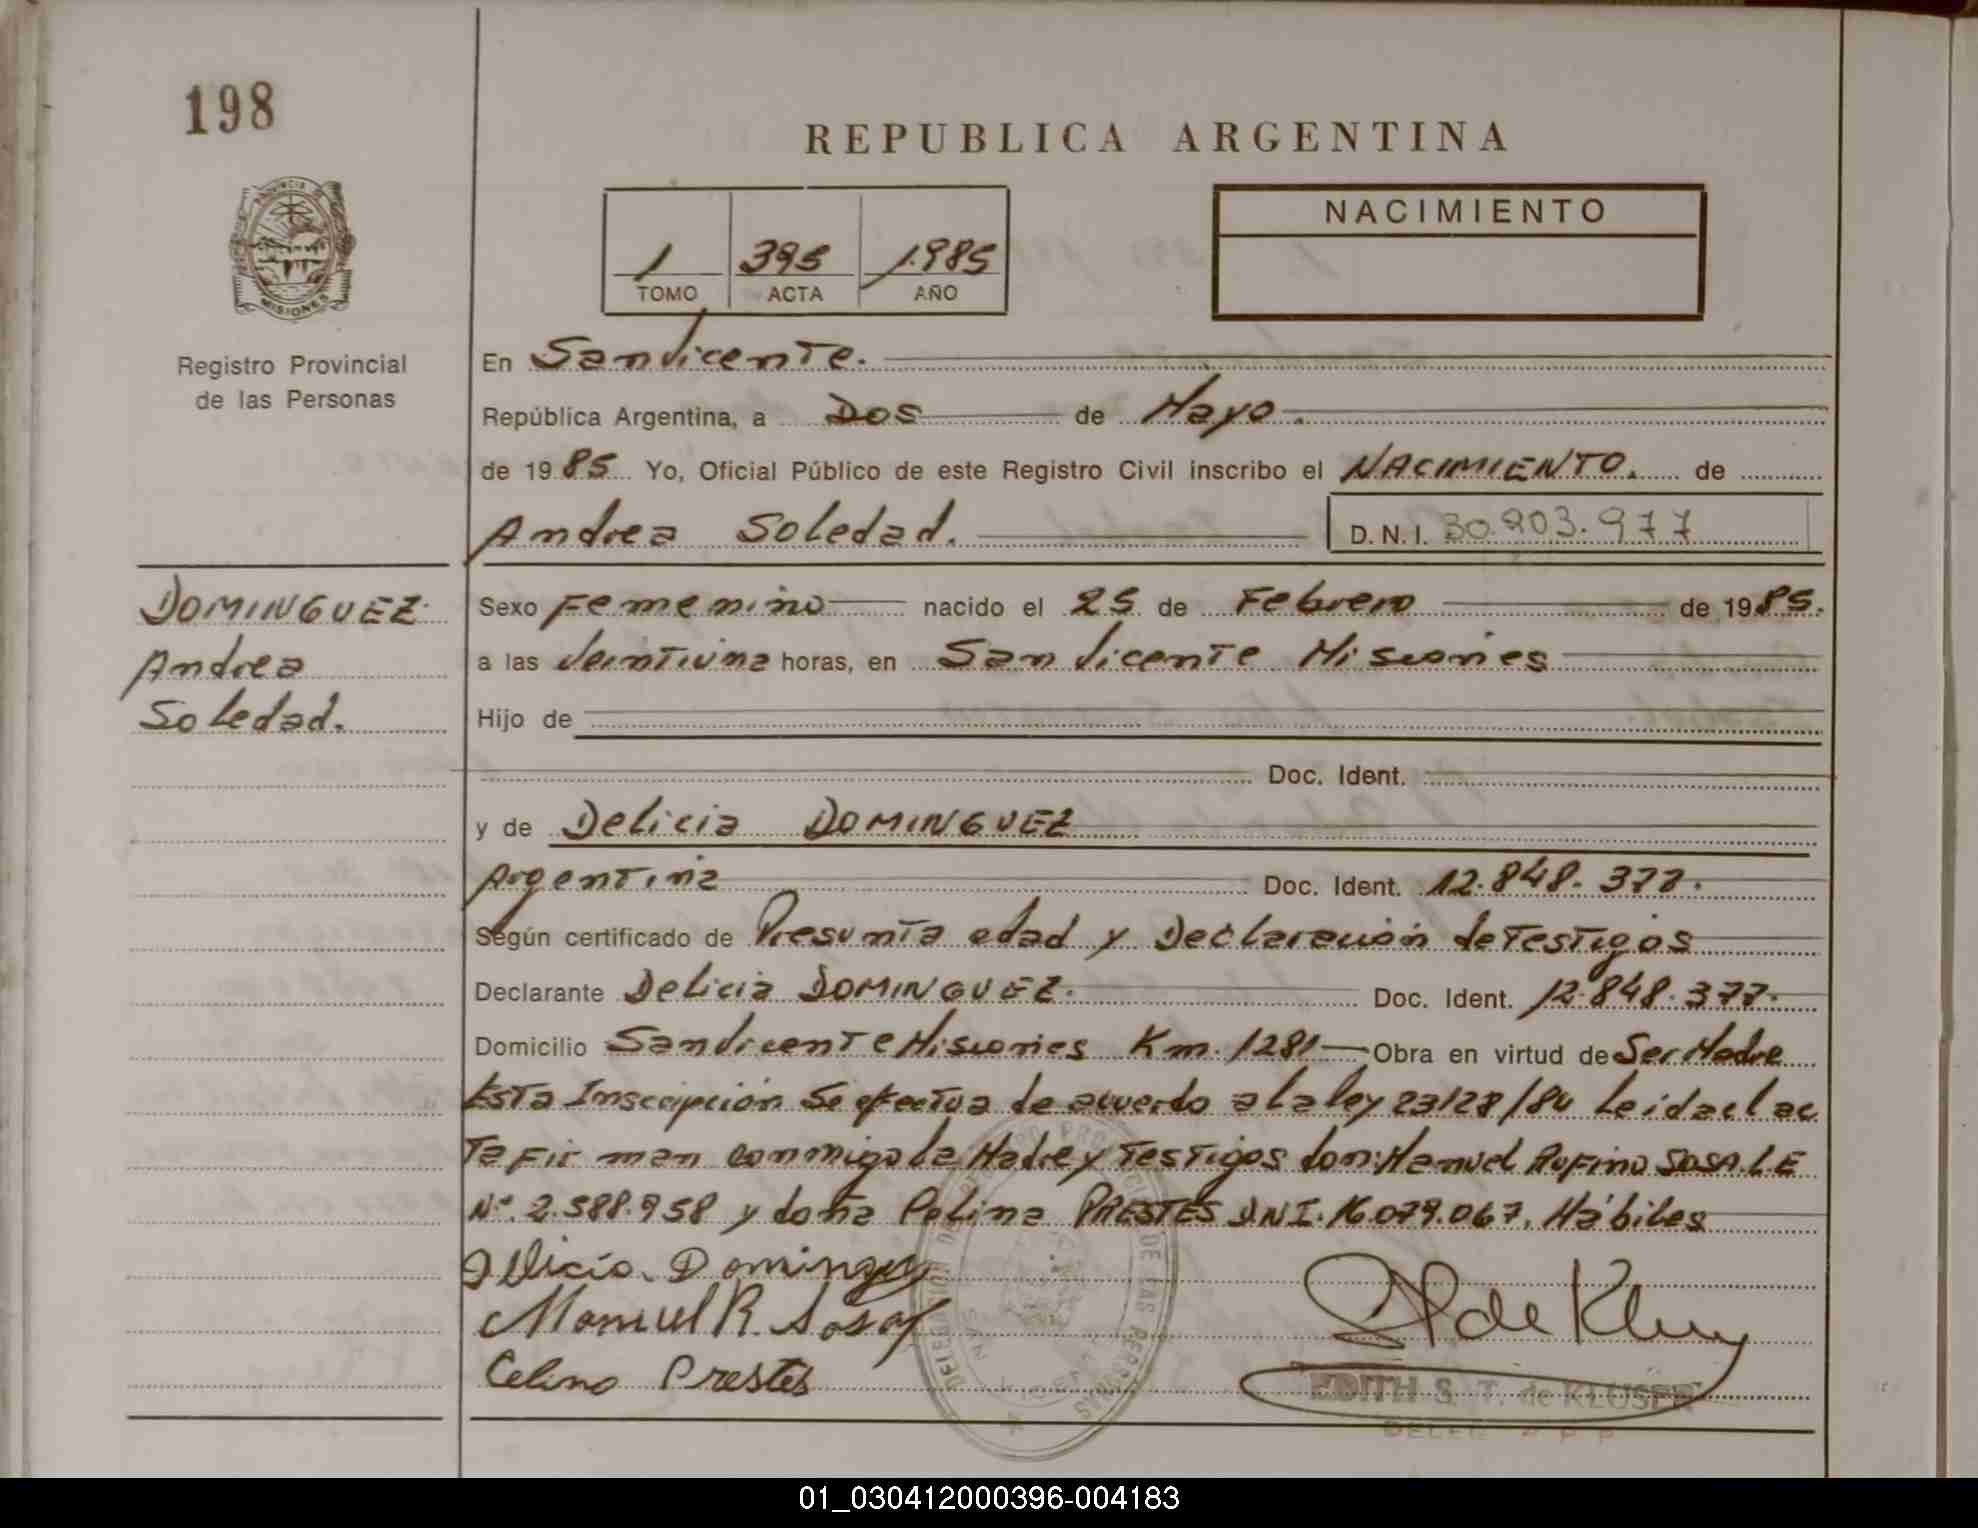 198
REPUBLICA ARGENTINA
1 395 1.985
TOMO ACTA AÑO
NACIMIENTO
PROVINCIA DE
MISIONES
Registro Provincial
de las Personas
En San Vicente.
República Argentina, a Dos de Mayo.
de 1985 Yo, Oficial Público de este Registro Civil inscribo el NACIMIENTO. de
Andrea Soledad. D. N. I. 30.903.977
DOMINGUEZ
Andrea
Soledad.
Sexo Femenino nacido el 25 de Febrero de 1985.
a las Veintiuna horas, en San Vicente Misiones
Hijo de
Doc. Ident.
y de Delicia DOMINGUEZ
Argentina Doc. Ident. 12.848.377.
Según certificado de Presunta edad y Declaración de Testigos
Declarante Delicia DOMINGUEZ. Doc. Ident. 12.848.377.
Domicilio San Vicente Misiones Km. 1281 Obra en virtud de Ser Madre
Esta Inscripción Se efectua de acuerdo a la ley 23128/84 Leida el ac
ta Fir man conmigo la Madre y Testigos don: Manuel Rufino SOSA L.E
Nº. 2.588.958 y doña Celina PRESTES D.N.I. 16.079.067, Hábiles
Delicia Dominguez
Manuel R. Sosa
Celino Prestes
DELEGACION DEL REGISTRO PROVINCIAL DE LAS PERSONAS
SAN VICENTE
EDITH S. T. de KLUSER
01_030412000396-004183